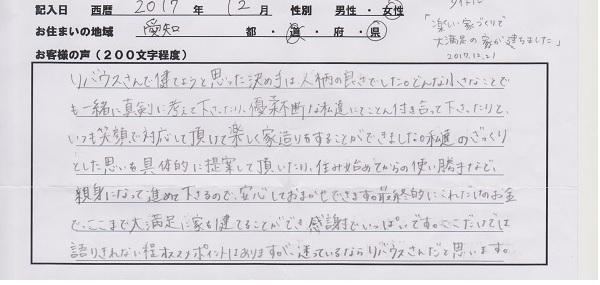 記入日 西暦 2017 年 12 月 性別 男性・女性
お住まいの地域 愛知 都・道・府・県
「楽しい家づくりで
大満足の家が建ちました」
2017.12.21
お客様の声(200文字程度)
リバウスさんで建てようと思った決め手は人柄の良さでした。どんな小さなことで
も一緒に真剣に考えて下さったり、優柔不断な私達にとことん付き合って下さったりと、
いつも笑顔で対応して頂けて楽しく家造りをすることができました。私達のざっくり
とした思いを具体的に提案して頂いたり、住み始めてからの使い勝手など、
親身になって進めて下さるので、安心しておまかせできます。最終的にこれだけのお金
で、ここまで大満足に家を建てることができ感謝でいっぱいです。ここだけでは
語りきれない程オススメポイントはありますが、迷っているならリバウスさんだと思います。